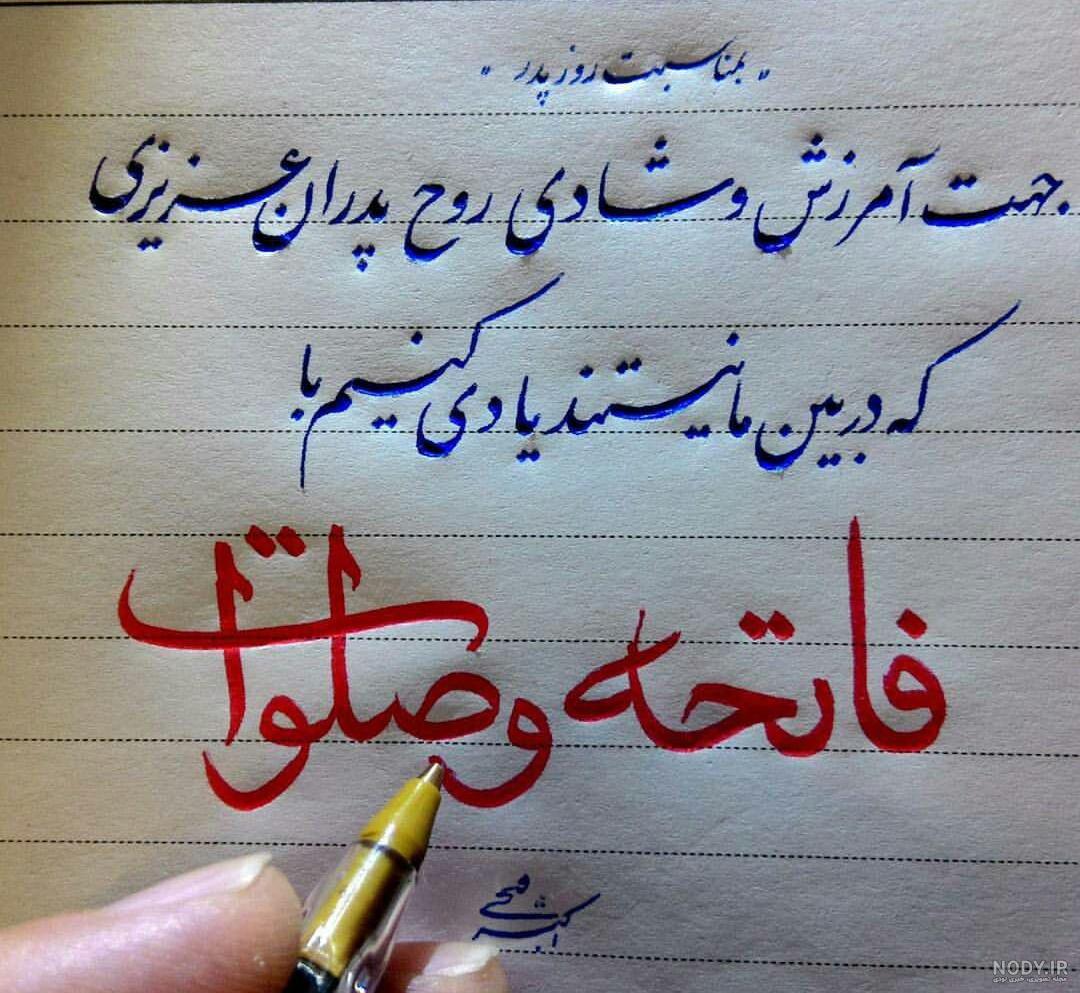 " بمناسبت روز پدر "
جهت آمرزش و شادی روح پدران عزیزی
که در بین ما نیستند یادی کنیم با
فاتحه و صلوات
فتحی
NODY.IR
مجله تصویری، خبری نودی